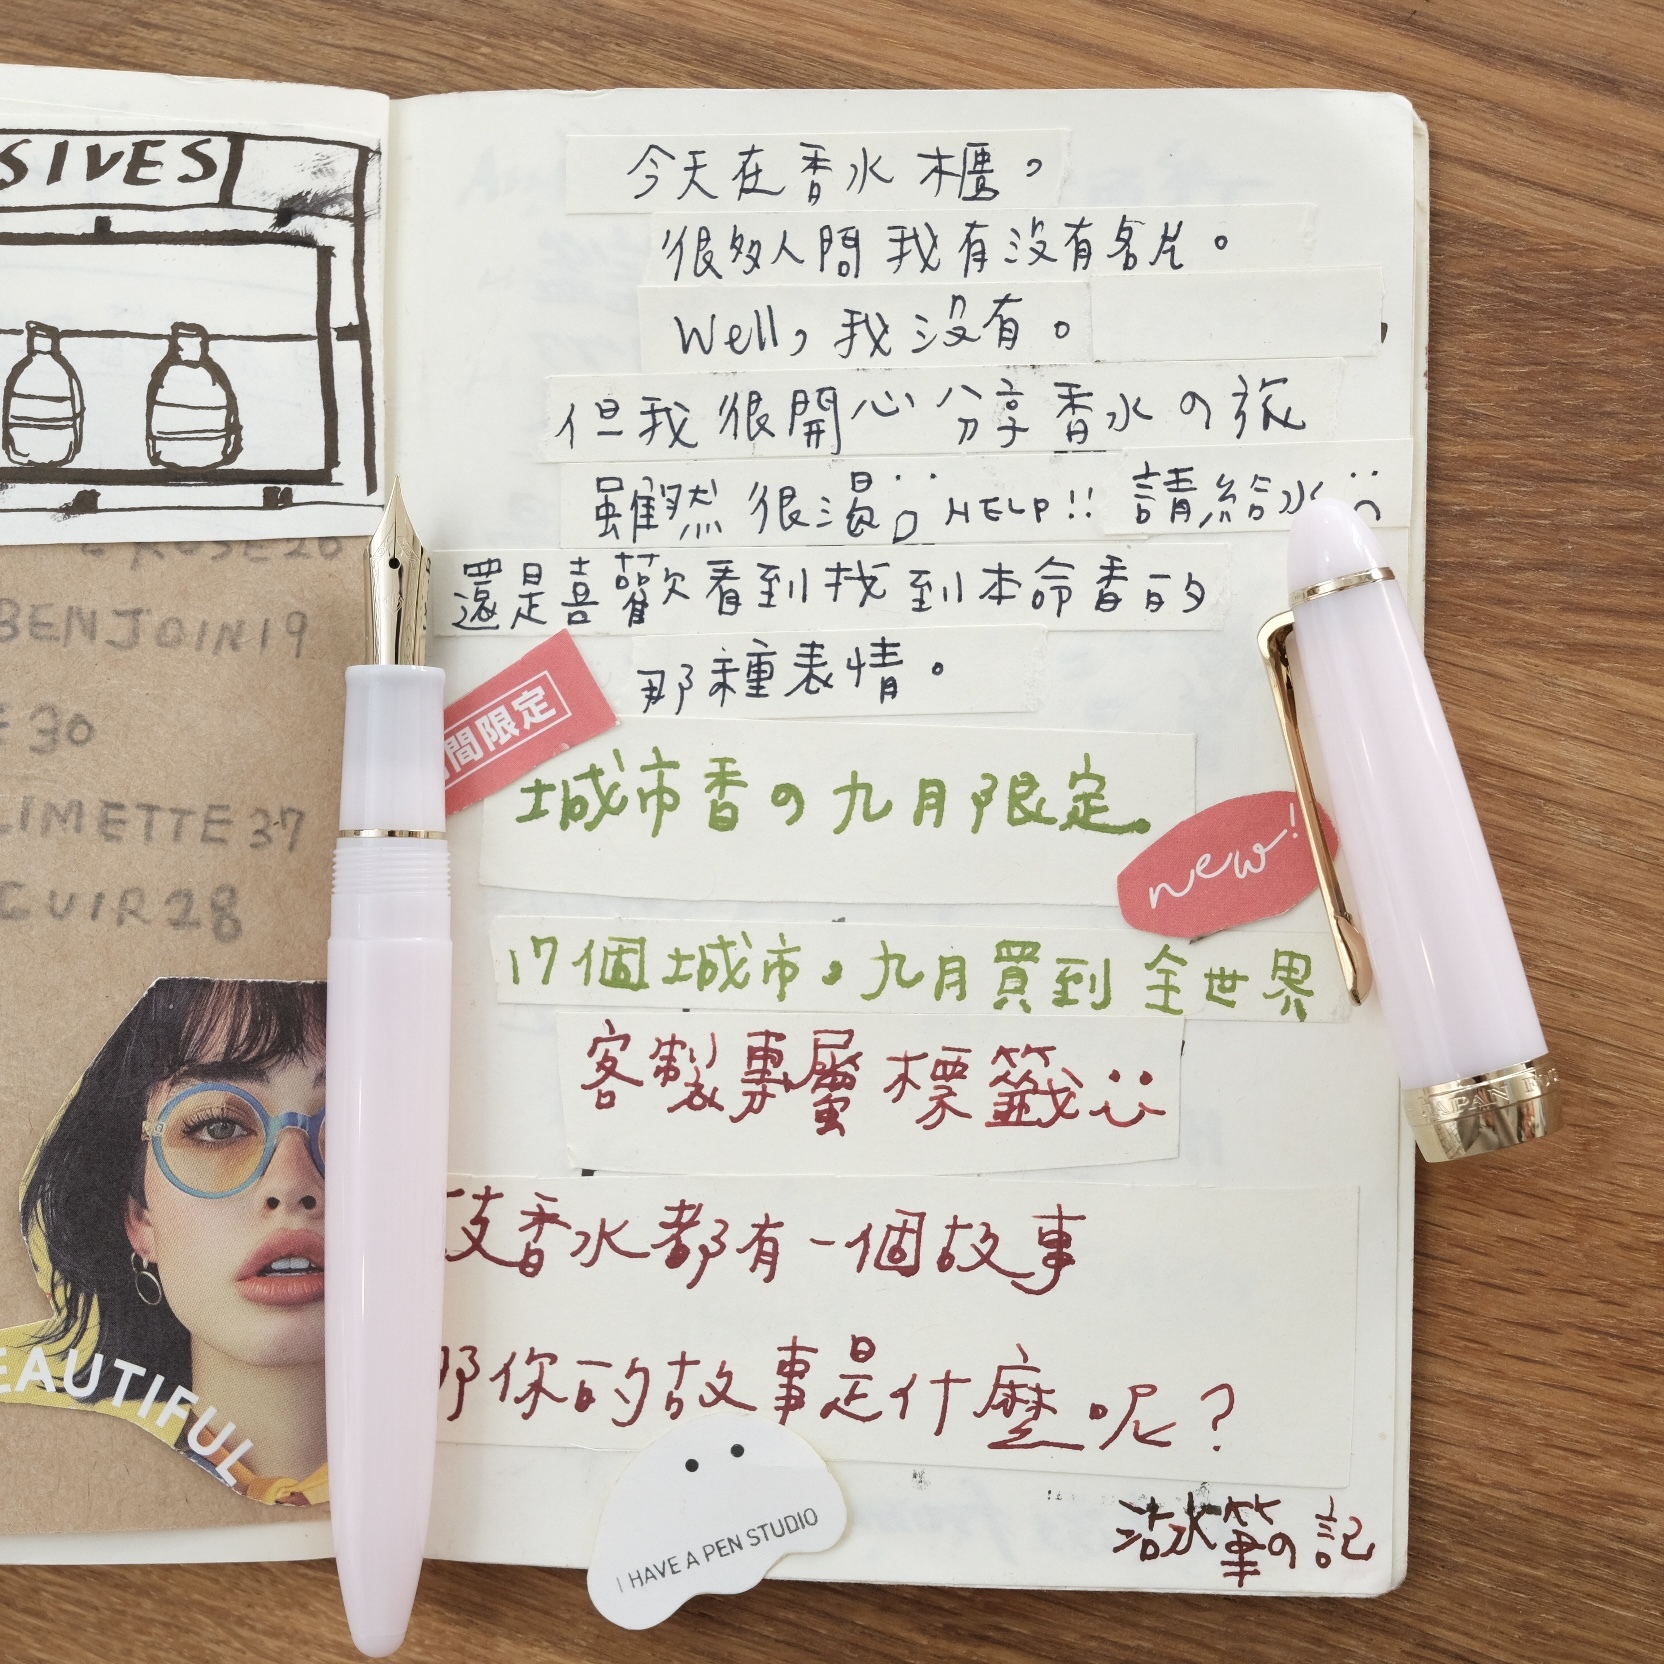 SIVES
ROSE 26
BENJOIN 19
30
LIMETTE 37
CUIR 28
EAUTIFUL
今天在香水櫃，
很多人問我有沒有名片。
Well，我沒有。
但我很開心分享香水の旅
雖然很渴 HELP!! 請給水
還是喜歡看到找到本命香的
那種表情。
間限定
城市香の九月限定。
new!
17個城市。九月買到全世界
客製專屬標籤
支香水都有一個故事
那你的故事是什麼呢？
I HAVE A PEN STUDIO
筆の記
JAPAN